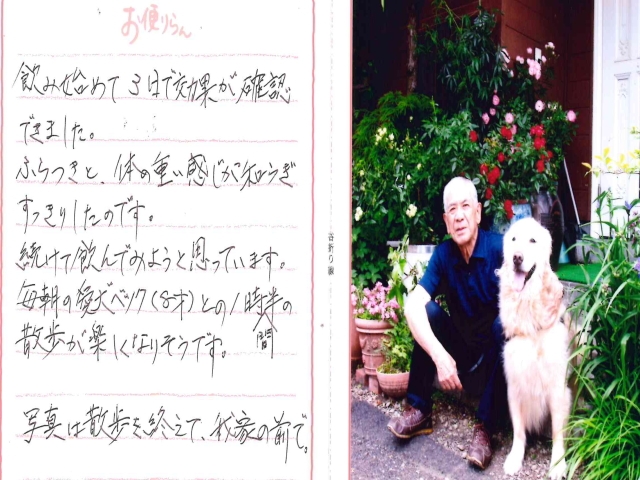 お便りらん
飲み始めて3日で効果が確認
できました。
ふらつきと、体の重い感じが和らぎ
すっきりしたのです。
続けて飲んでみようと思っています。
毎朝の愛犬ベック(8才)との1時間半の
散歩が楽しくなりそうです。
写真は散歩を終えて、我家の前で。
谷折り線